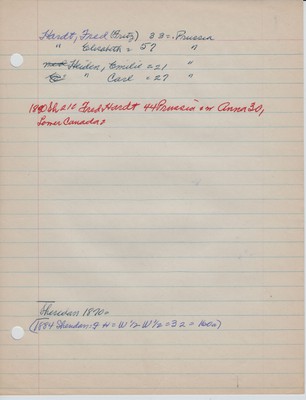 Hardt, Fred (Fritz) 32 = Prussia
" Elizabeth = 57 "
Heiden, Emilie = 21 "
" Carl = 27 "
1880 Sh, 210 Fred Hardt 44 Prussia = Anna 30,
Lower Canada =
Sheridan 1870 =
(1884 Sheridan: F H = W 1/2 W 1/2 = 32 = 160a)